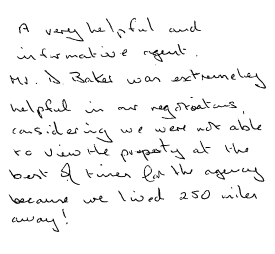 A very helpful and
informative agent.
Mr. D Baker was extremely
helpful in our negotiations,
considering we were not able
to view the property at the
best of times for the agency
because we lived 250 miles
away!